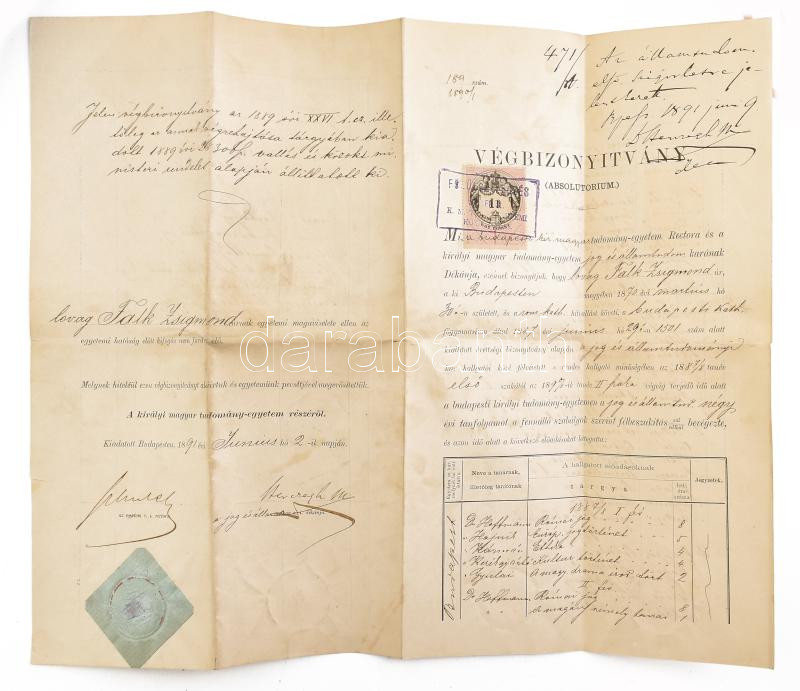 Jelen végbizonyitvány az 1889 évi XXVI t. cz. ille-
tőleg az annak végrehajtása tárgyában kia-
dott 1889 évi
vallás és közokt. mi-
niszteri rendelet alapján állittatott ki.
lovag Falk Zsigmond urnak egyetemi magaviselete ellen az
egyetemi hatóság előtt kifogás nem fordu elő.
Melynek hiteléül ezen végbizonyitványt aláirtuk és egyetemünk pecsétjével megerősitettük.
A királyi magyar tudomány-egyetem részéről.
Kiadatott Budapesten, 1891 évi Junius hó 2-ik napján.
az egyetem e. i. rectora.
a jog és államtud. dékánja.
189 szám.
1890/1
471/
Az államtudom.
első szigorlatra je-
lentkezett.
Bpest 1891 jun 9
VÉGBIZONYITVÁNY
(ABSOLUTORIUM.)
Mi a budapesti kir. magyar tudomány-egyetem Rectora és a
királyi magyar tudomány-egyetem jog és államtudom karának
Dékánja, ezennel bizonyitjuk, hogy lovag Falk Zsigmond úr,
a ki Budapesten megyében 1870 évi martius hó
30-án született, és a rom. kath. hitvallást követi, a budapesti kath.
főgymnasium által 1887 évi junius hó 29-én 1501 szám alatt
kiadott érettségi bizonyitvány alapján a jog és államtudományi
kar hallgatói közé felvétetett s rendes hallgatói minőségben az 1887/8 tanév
első szakától az 1890/1-ik tanév II szaka végéig terjedő idő alatt
a budapesti királyi tudomány-egyetemen a jog és államtud. négy
évi tanfolyamot a fennálló szabályok szerint félbeszakitás nélkül bevégezte,
és azon idő alatt a következő előadásokat látogatta:
Neve a tanárnak, illetőleg tanitónak
A hallgatott előadásoknak
tárgya
Jegyzetek.
Budapest
1887/8 I fév
Dr Hoffmann Római jog 8
" Hajnik Európ. jogtörténet 5
" Kármán Ethika 4
" Kerékgyártó Kultur történet 4
" Gyulai A magy. dráma irod. tört 2
II fév
Dr Hoffmann Római jog 8
" " 1
darabanth